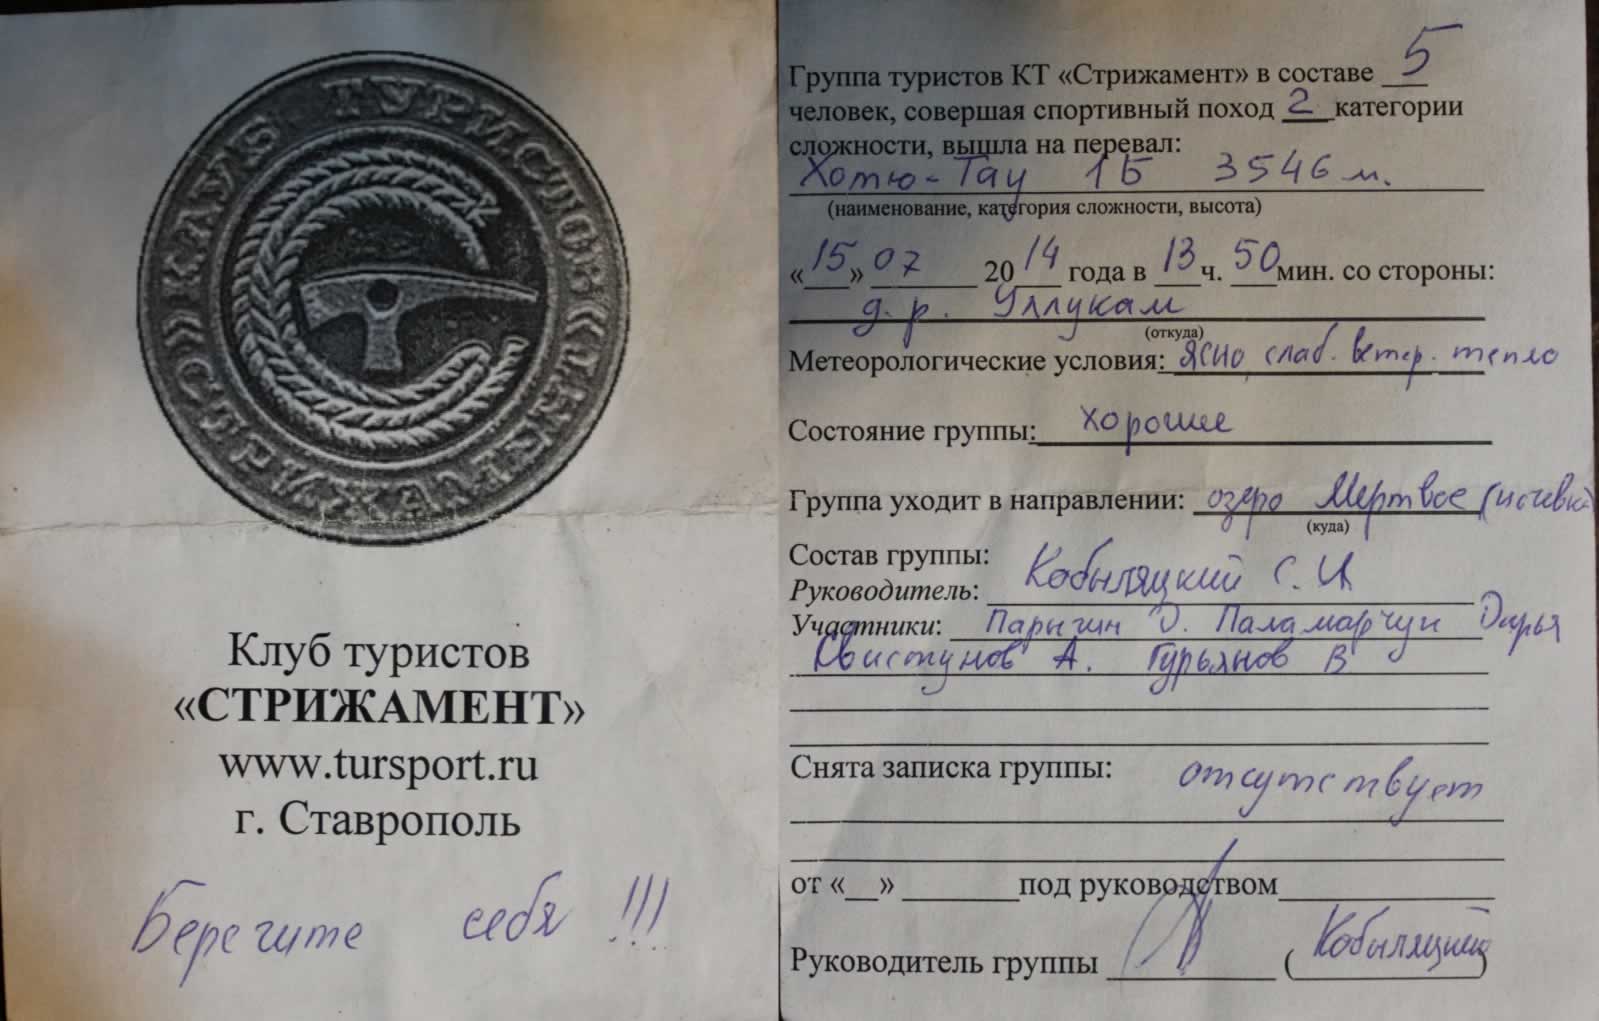 КЛУБ ТУРИСТОВ «СТРИЖАМЕНТ»
Клуб туристов
«СТРИЖАМЕНТ»
www.tursport.ru
г. Ставрополь
Берегите себя !!!
Группа туристов КТ «Стрижамент» в составе 5
человек, совершая спортивный поход 2 категории
сложности, вышла на перевал:
Хотю-Тау 1Б 3546 м.
(наименование, категория сложности, высота)
«15» 07 2014 года в 13 ч. 50 мин. со стороны:
д. р. Уллукам
(откуда)
Метеорологические условия: ясно, слаб. ветер. тепло
Состояние группы: хорошее
Группа уходит в направлении: озеро Мертвое (ночевка
(куда)
Состав группы:
Руководитель: Кобыляцкий С. И.
Участники: Парыгин Д. Паламарчук Дарья
Свистунов А. Гурьянов В
Снята записка группы: отсутствует
от «__» ________ под руководством
Руководитель группы (Кобыляцкий)